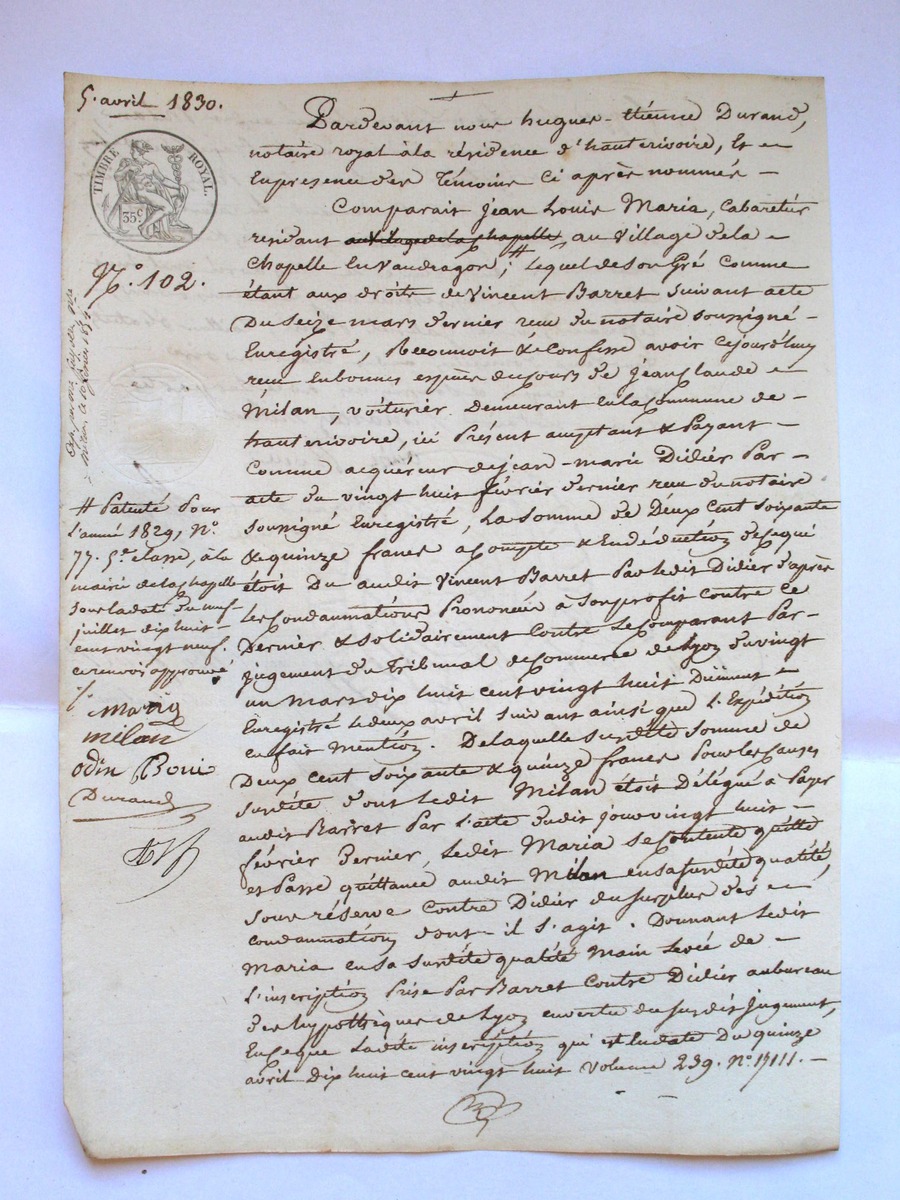 5. avril 1830.
TIMBRE ROYAL.
35c
N.o 102.
# Patenté Pour
l'année 1829, N.o
77. 5.e classe, à la
mairie de la chapelle
sous la date du neuf
juillet dix huit
cent vingt neuf.
ce renvoi approuvé
Maria
milan
odin Boui
Durand
Pardevant nous hugues-étienne Durand,
notaire royal à la résidence d'hauterivoire, Et
En présence des Témoins ci après nommés
Comparait jean Louis Maria, Cabaretier
residant au Village de la Chapelle, au Village de la
Chapelle En Vaudragon; # lequel de son Gré Comme
étant aux droits de Vincent Barret suivant acte
Du seize mars dernier recu du notaire soussigné
Enregistré, Reconnoit & confesse avoir cejourd'huy
recu en bonnes espèces de cours de jean Claude
Milan, voiturier Demeurant En la Commune de
hauterivoire, ici Présent acceptant & Payant
Comme acquéreur de jean-marie Didier Par
acte du vingt huit février dernier recu du notaire
soussigné Enregistré, la somme de Deux cent soixante
& quinze francs a Compte & En déduction de ce qui
étoit Du audit Vincent Barret Par ledit Didier d'après
les condamnations Prononcées à son profit contre ce
Dernier & solidairement Contre le Comparant Par
jugement du Tribunal de Commerce de Lyon du vingt
un Mars dix huit cent vingt huit Duement
Enregistré le deux avril suivant ainsi que l'Expédition
en fait mention. De laquelle susdite somme de
Deux cent soixante & quinze francs Pour les causes
susdites dont ledit Milan étoit Délégué à Payer
audit Barret Par l'acte dudit jour vingt huit
février Dernier, ledit Maria se Contente quitte
et Passe quittance audit Milan en sa susdite qualité,
sous réserve contre Didier du surplus des
condamnations dont il s'agit. Donnant ledit
Maria en sa susdite qualité main levée de
l'inscription Prise Par Barret contre Didier au bureau
des hypothèques de Lyon en vertu du susdit jugement,
En ce que ladite inscription qui est en date Du quinze
avril Dix huit cent vingt huit Volume 239. N.o